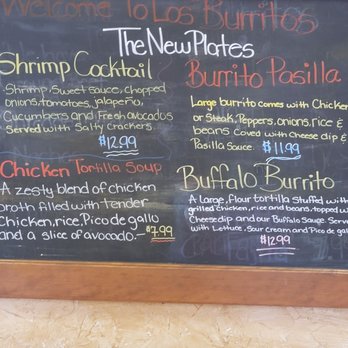 Welcome To Los Burritos
The New Plates
Shrimp Cocktail
Shrimp, Sweet sauce, chopped
onions, tomatoes, jalapeño,
Cucumbers and Fresh avocados
Served with Salty Crackers.
$12.99
Chicken Tortilla Soup
A zesty blend of chicken
broth filled with tender
Chicken, rice, Pico de gallo
and a slice of avocado.- $7.99
Burrito Pasilla
Large burrito comes with Chicken
or Steak, Peppers, onions, rice &
beans Coved with Cheese dip &
Pasilla Sauce. $11.99
Buffalo Burrito
A large, flour tortilla stuffed with
grilled chicken, rice and beans, topped w
Cheesedip and our Buffalo Sauge. Serv
with Lettuce, Sour Cream and Pico de gal
$12.99